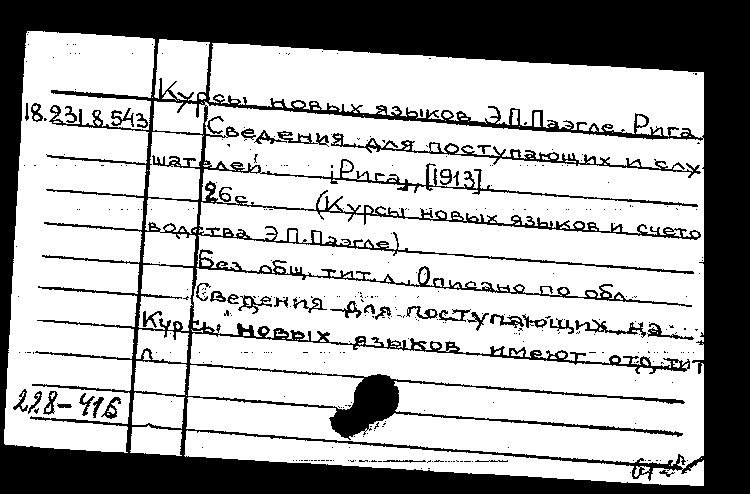 Курсы новых языков Э.П.Паэгле. Рига.
18.231.8.543
Сведения для поступающих и слу-
шателей. [Рига], [1913].
26с. (Курсы новых языков и счето
водства Э.П.Паэгле).
Без общ. тит. л. Описано по обл.
Сведения для поступающих на
Курсы новых языков имеют отд. тит.
л.
228-416